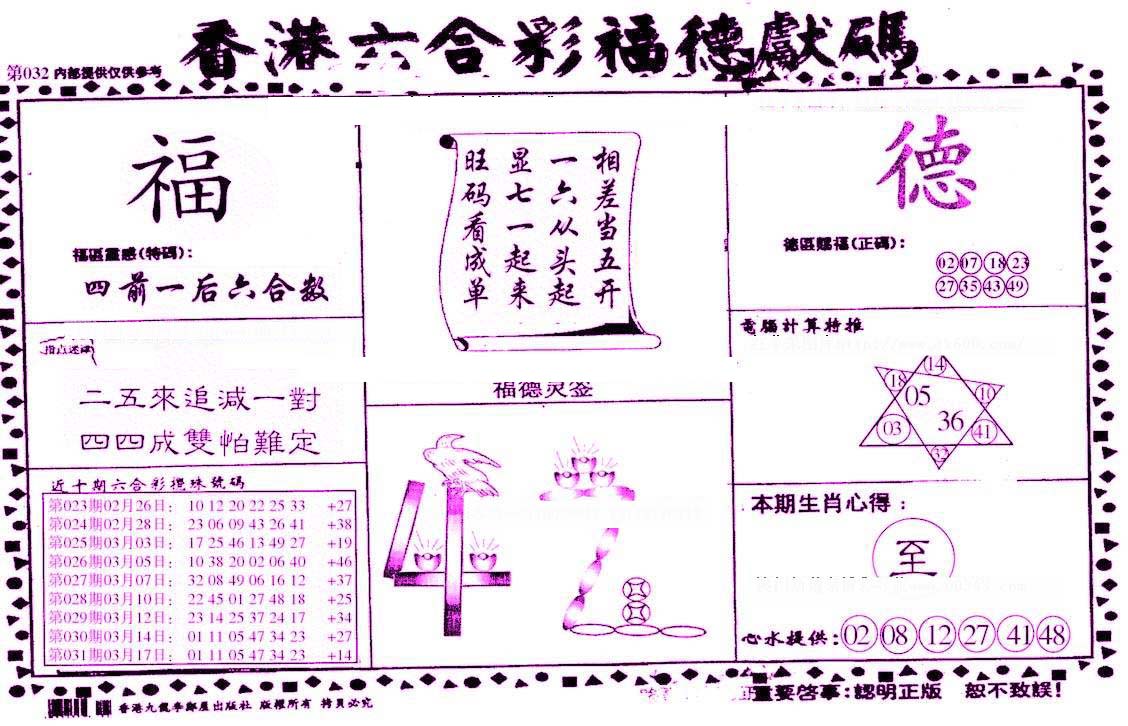 香港六合彩福德獻碼
第032 内部提供仅供参考
福
福區靈感(特碼):
四前一后六合数
相差当五开
一六从头起
显七一起来
旺码看成单
德
德區賜福(正碼):
02 07 18 23
27 35 43 49
二五來追減一對
四四成雙怕難定
福德灵签
42
電腦計算特推
14
18 05 10
03 36 41
32
近十期六合彩攪珠號碼
第023期02月26日: 10 12 20 22 25 33 +27
第024期02月28日: 23 06 09 43 26 41 +38
第025期03月03日: 17 25 46 13 49 27 +19
第026期03月05日: 10 38 20 02 06 40 +46
第027期03月07日: 32 08 49 06 16 12 +37
第028期03月10日: 22 45 01 27 48 18 +25
第029期03月12日: 23 14 25 37 24 17 +34
第030期03月14日: 01 11 05 47 34 23 +27
第031期03月17日: 01 11 05 47 34 23 +14
本期生肖心得:
至
心水提供: 02 08 12 27 41 48
重要啓事:認明正版 恕不致誤!
版權所有 拷貝必究